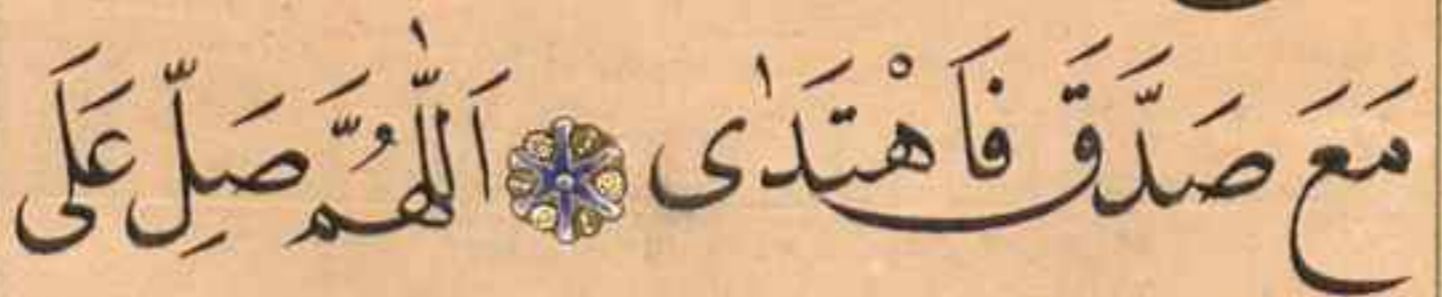 مَعَ صَدَّقَ فَاَهْتَدٰى ۞ اَللّٰهُمَّ صَلِّ عَلَى